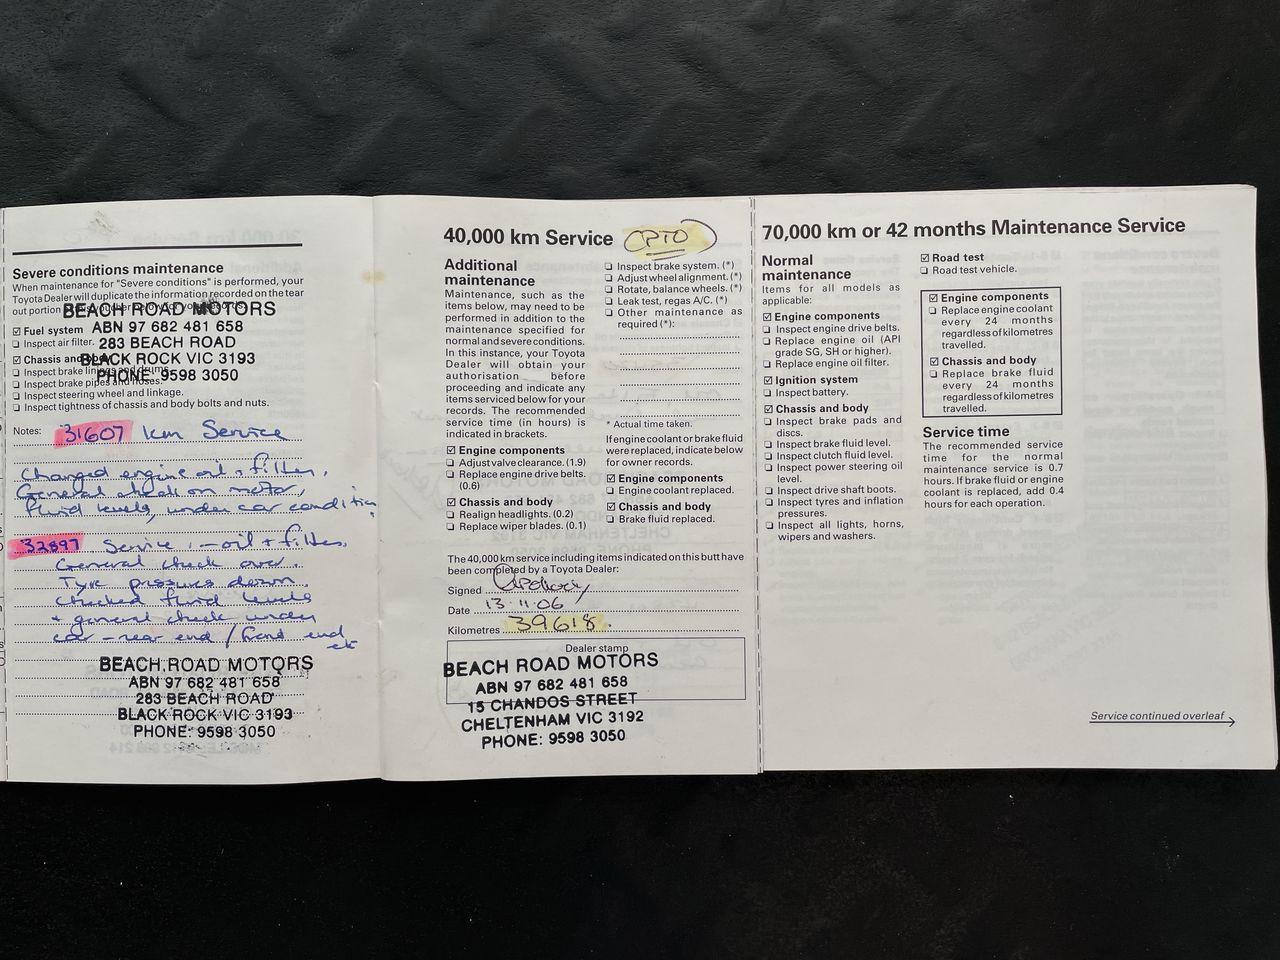 Severe conditions maintenance
When maintenance for "Severe conditions" is performed, your
Toyota Dealer will duplicate the information recorded on the tear
out portion
BEACH ROAD MOTORS
ABN 97 682 481 658
283 BEACH ROAD
BLACK ROCK VIC 3193
PHONE: 9598 3050
☑ Fuel system
❏ Inspect air filter.
☑ Chassis and body
❏ Inspect brake linings and drums.
❏ Inspect brake pipes and hoses.
❏ Inspect steering wheel and linkage.
❏ Inspect tightness of chassis and body bolts and nuts.
Notes: 31607 km Service
Changed engine oil + filter,
General check on motor,
fluid levels, under car condition
32897 Service :- oil + filter,
General check over.
Tyre pressures down,
checked fluid levels
+ general check under
car - rear end / front end
etc
BEACH ROAD MOTORS
ABN 97 682 481 658
283 BEACH ROAD
BLACK ROCK VIC 3193
PHONE: 9598 3050
40,000 km Service PTO
Additional
maintenance
Maintenance, such as the
items below, may need to be
performed in addition to the
maintenance specified for
normal and severe conditions.
In this instance, your Toyota
Dealer will obtain your
authorisation before
proceeding and indicate any
items serviced below for your
records. The recommended
service time (in hours) is
indicated in brackets.
☑ Engine components
❏ Adjust valve clearance. (1.9)
❏ Replace engine drive belts.
(0.6)
☑ Chassis and body
❏ Realign headlights. (0.2)
❏ Replace wiper blades. (0.1)
❏ Inspect brake system. (*)
❏ Adjust wheel alignment. (*)
❏ Rotate, balance wheels. (*)
❏ Leak test, regas A/C. (*)
❏ Other maintenance as
required (*):
* Actual time taken.
If engine coolant or brake fluid
were replaced, indicate below
for owner records.
☑ Engine components
❏ Engine coolant replaced.
☑ Chassis and body
❏ Brake fluid replaced.
The 40,000 km service including items indicated on this butt have
been completed by a Toyota Dealer:
Signed
Date 13.11.06
Kilometres 39618.
Dealer stamp
BEACH ROAD MOTORS
ABN 97 682 481 658
15 CHANDOS STREET
CHELTENHAM VIC 3192
PHONE: 9598 3050
70,000 km or 42 months Maintenance Service
Normal
maintenance
Items for all models as
applicable:
☑ Engine components
❏ Inspect engine drive belts.
❏ Replace engine oil (API
grade SG, SH or higher).
❏ Replace engine oil filter.
☑ Ignition system
❏ Inspect battery.
☑ Chassis and body
❏ Inspect brake pads and
discs.
❏ Inspect brake fluid level.
❏ Inspect clutch fluid level.
❏ Inspect power steering oil
level.
❏ Inspect drive shaft boots.
❏ Inspect tyres and inflation
pressures.
❏ Inspect all lights, horns,
wipers and washers.
☑ Road test
❏ Road test vehicle.
☑ Engine components
❏ Replace engine coolant
every 24 months
regardless of kilometres
travelled.
☑ Chassis and body
❏ Replace brake fluid
every 24 months
regardless of kilometres
travelled.
Service time
The recommended service
time for the normal
maintenance service is 0.7
hours. If brake fluid or engine
coolant is replaced, add 0.4
hours for each operation.
Service continued overleaf